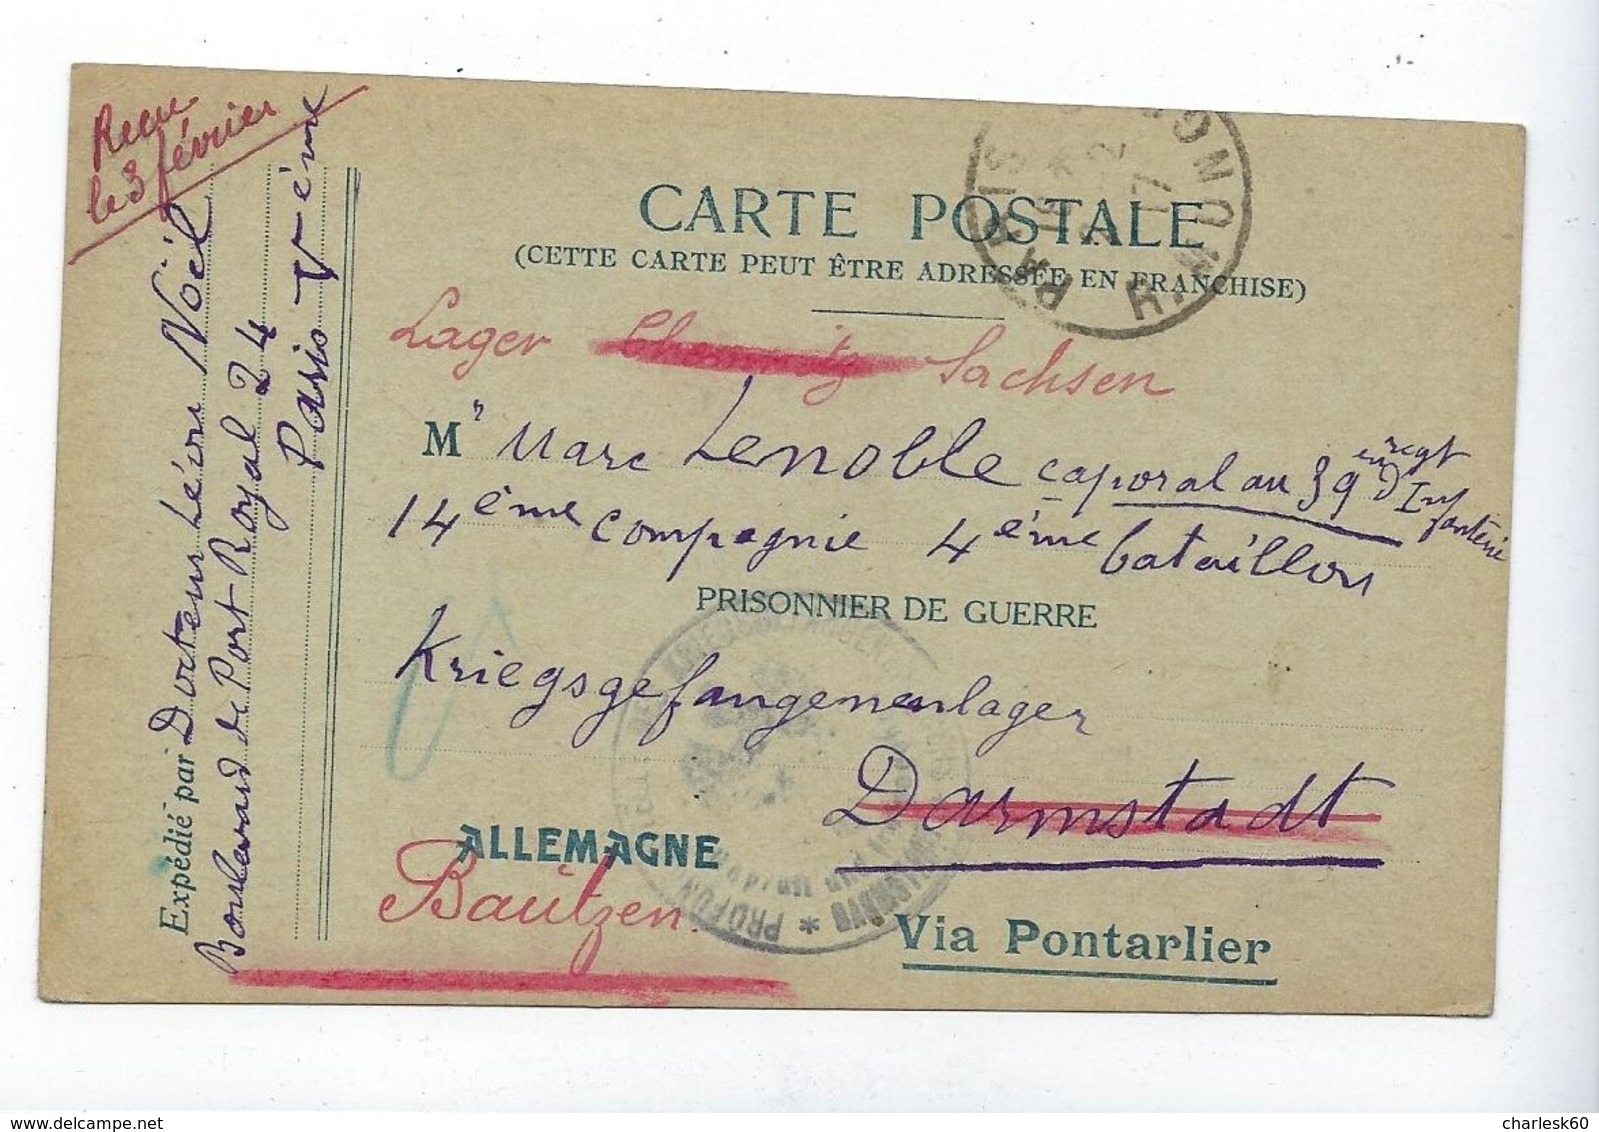 Recu
le 3 février
Expédié par Docteur Léon Noël
Boulevard de Port Royal 24
Paris Vème
CARTE POSTALE
(CETTE CARTE PEUT ÊTRE ADRESSÉE EN FRANCHISE)
Lager Chemnitz Sachsen
Mr Marc Lenoble caporal au 39ème regt d'Infanterie
14ème compagnie 4ème bataillon
PRISONNIER DE GUERRE
Kriegsgefangenenlager
Darmstadt
ALLEMAGNE
Bautzen.
Via Pontarlier
PARIS
R. MO
17
delcampe.net
charlesk60